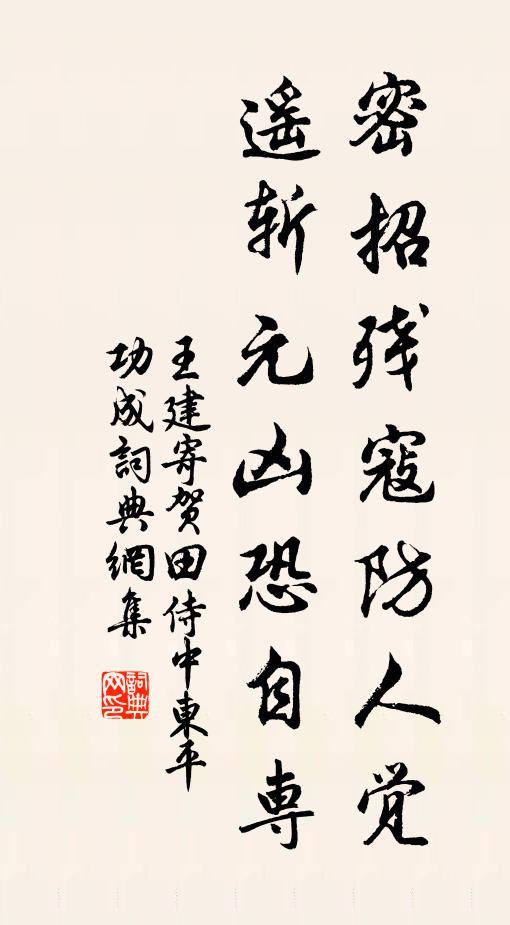 密招残寇防人觉
遥斩元凶恐自専
王建寄贺田侍中東平
功成詞典網集
詞典网印